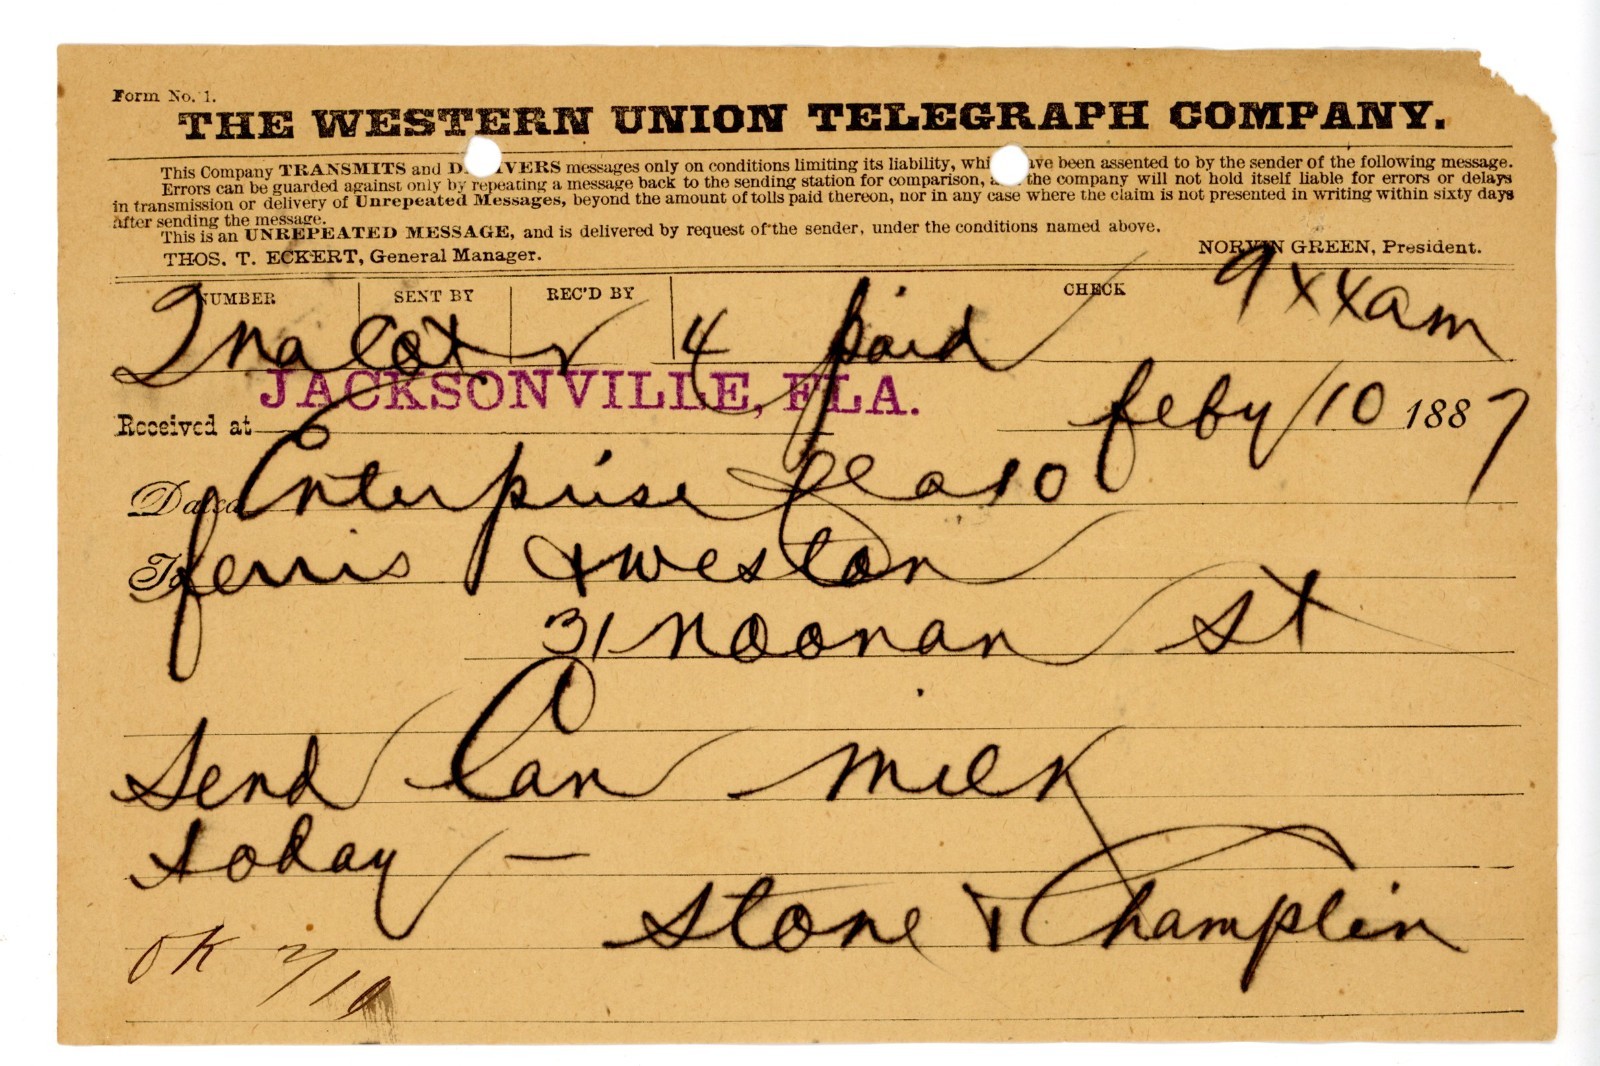 Form No. 1.
THE WESTERN UNION TELEGRAPH COMPANY.
This Company TRANSMITS and DELIVERS messages only on conditions limiting its liability, which have been assented to by the sender of the following message.
Errors can be guarded against only by repeating a message back to the sending station for comparison, and the company will not hold itself liable for errors or delays
in transmission or delivery of Unrepeated Messages, beyond the amount of tolls paid thereon, nor in any case where the claim is not presented in writing within sixty days
after sending the message.
This is an UNREPEATED MESSAGE, and is delivered by request of the sender, under the conditions named above.
THOS. T. ECKERT, General Manager. NORVIN GREEN, President.
NUMBER SENT BY REC'D BY CHECK
4 paid 9xxam
JACKSONVILLE, FLA.
Received at Feby 10 1887
Dated Enterprise Fla 10
To Ferris & Weston
31 Noonan St
Send Can milk
today —
Stone & Champlin
OK 2/10